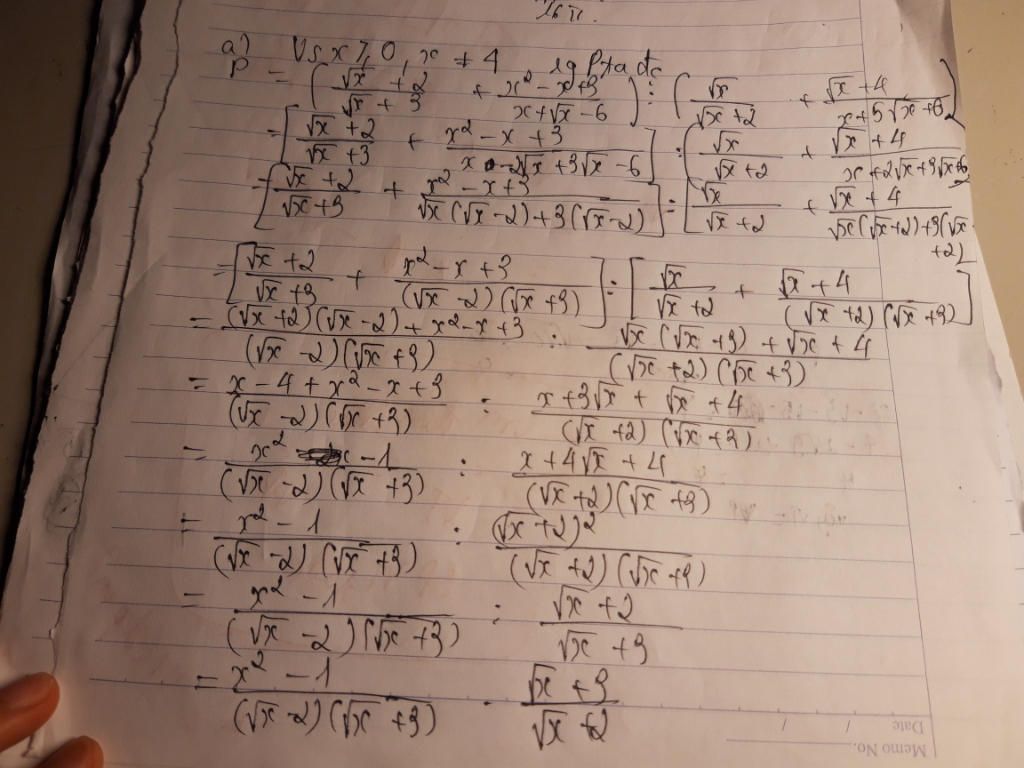 16π.
a) Vs x ⩾ 0, x ≠ 4
P = (√x + 2 / √x + 3 + x² - x + 3 / x + √x - 6) : (√x / √x + 2 + √x + 4 / x + 5√x + 6)
= [√x + 2 / √x + 3 + x² - x + 3 / x - 2√x + 3√x - 6] : (√x / √x + 2 + √x + 4 / x + 2√x + 3√x + 6
= [√x + 2 / √x + 3 + x² - x + 3 / √x (√x - 2) + 3 (√x - 2)] : [√x / √x + 2 + √x + 4 / √x (√x + 2) + 3 (√x + 2)]
= [√x + 2 / √x + 3 + x² - x + 3 / (√x - 2) (√x + 3)] : [√x / √x + 2 + √x + 4 / (√x + 2) (√x + 3)]
= (√x + 2) (√x - 2) + x² - x + 3 / (√x - 2) (√x + 3) : √x (√x + 3) + √x + 4 / (√x + 2) (√x + 3)
= x - 4 + x² - x + 3 / (√x - 2) (√x + 3) : x + 3√x + √x + 4 / (√x + 2) (√x + 3)
= x² - 1 / (√x - 2) (√x + 3) : x + 4√x + 4 / (√x + 2) (√x + 3)
= x² - 1 / (√x - 2) (√x + 3) : (√x + 2)² / (√x + 2) (√x + 3)
= x² - 1 / (√x - 2) (√x + 3) : √x + 2 / √x + 3
= x² - 1 / (√x - 2) (√x + 3) . √x + 3 / √x + 2
Date / /
Memo No.